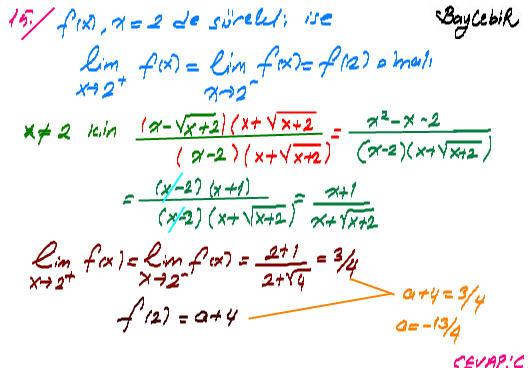 15./ f(x), x=2 de sürekli ise
BayCebir
lim x→2⁺ f(x) = lim x→2⁻ f(x) = f(2) olmalı
x≠2 için (x-√x+2)(x+√x+2) / (x-2)(x+√x+2) = x²-x-2 / (x-2)(x+√x+2)
= (x-2)(x+1) / (x-2)(x+√x+2) = x+1 / x+√x+2
lim x→2⁺ f(x) = lim x→2⁻ f(x) = 2+1 / 2+√4 = 3/4
f(2) = a+4
a+4 = 3/4
a = -13/4
CEVAP: C